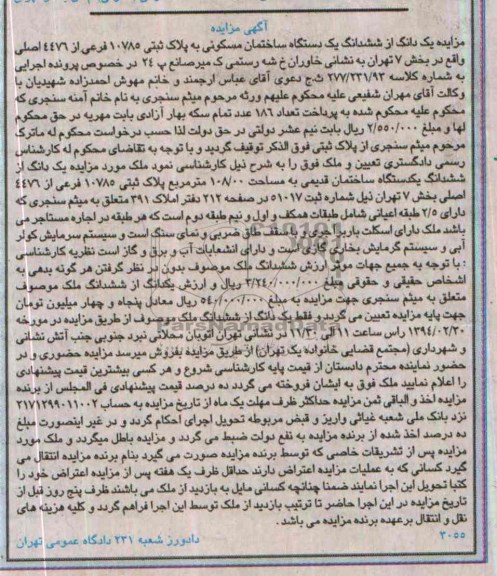 آگهی مزایده
مزایده یک دانگ از ششدانگ یک دستگاه ساختمان مسکونی به پلاک ثبتی ۱۰۷۸۵ فرعی از ۴۴۷۶ اصلی
واقع در بخش ۷ تهران به نشانی خاوران خ شه رستمی ک میرصانع پ ۲۴ در خصوص پرونده اجرایی
به شماره کلاسه ۲۷۷/۲۳۱/۹۳ ش.ج دعوی آقای عباس ارجمند و خانم مهوش احمدزاده شهیدیان با
وکالت آقای مهران شفیعی علیه محکوم علیهم ورثه مرحوم میثم سنجری به نام خانم آمنه سنجری که
محکوم علیه محکوم شده به پرداخت تعداد ۱۸۶ عدد تمام سکه بهار آزادی بابت مهریه در حق محکوم
لها و مبلغ ۲/۵۵۰/۰۰۰ ریال بابت نیم عشر دولتی در حق دولت لذا حسب درخواست محکوم له ماترک
مرحوم میثم سنجری از پلاک ثبتی فوق الذکر توقیف گردید و با توجه به تقاضای محکوم له کارشناس
رسمی دادگستری تعیین و ملک فوق را به شرح ذیل کارشناسی نمود ملک مورد مزایده یک دانگ از
ششدانگ یکدستگاه ساختمان قدیمی به مساحت ۱۰۸/۰۰ مترمربع پلاک ثبتی ۱۰۷۸۵ فرعی از ۴۴۷۶
اصلی بخش ۷ تهران ذیل شماره ثبت ۵۱۰۱۷ در صفحه ۲۱۲ دفتر املاک ۳۹۱ متعلق به میثم سنجری که
دارای ۲/۵ طبقه اعیانی شامل طبقات همکف و اول و نیم طبقه دوم است که هر طبقه در اجاره مستاجر می
باشد ملک دارای اسکلت باربر آجری و سقف طاق ضربی و نمای سنگ است و سیستم سرمایش کولر
آبی و سیستم گرمایش بخاری گازی است و دارای انشعابات آب و برق و گاز است نظریه کارشناسی
: با توجه به جمیع جهات موثر ارزش ششدانگ ملک موصوف بدون در نظر گرفتن هر گونه بدهی به
اشخاص حقیقی و حقوقی مبلغ ۳/۲۴۰/۰۰۰/۰۰۰ ریال و ارزش یکدانگ از ششدانگ ملک موصوف
متعلق به میثم سنجری جهت مزایده به مبلغ ۵۴۰/۰۰۰/۰۰۰ ریال معادل پنجاه و چهار میلیون تومان
جهت پایه مزایده تعیین می گردد و فقط یک دانگ از ششدانگ ملک موصوف از طریق مزایده در مورخه
۱۳۹۴/۰۲/۳۰ راس ساعت ۱۱ الی ۱۱/۳۰ در نشانی تهران اتوبان محلاتی نبرد جنوبی جنب آتش نشانی
و شهرداری (مجتمع قضایی خانواده یک تهران) از طریق مزایده بفروش میرسد مزایده حضوری و در
حضور نماینده محترم دادستان از قیمت پایه کارشناسی شروع و هر کسی بیشترین قیمت پیشنهادی
را اعلام نمایید ملک فوق به ایشان فروخته می گردد ده درصد قیمت پیشنهادی فی المجلس از برنده
مزایده اخذ و الباقی ثمن مزایده حداکثر ظرف مهلت یک ماه از تاریخ مزایده به حساب ۲۱۷۱۲۹۹۰۱۱۰۰۲
نزد بانک ملی شعبه غیاثی واریز و قبض مربوطه تحویل اجرای احکام گردد و در غیر اینصورت مبلغ
ده درصد اخذ شده از برنده مزایده به نفع دولت ضبط می گردد و مزایده باطل میگردد و ملک مورد
مزایده پس از تشریفات خاصی که توسط برنده مزایده صورت می گیرد بنام برنده مزایده انتقال می
گیرد کسانی که به عملیات مزایده اعتراض دارند حداقل ظرف یک هفته پس از مزایده اعتراض خود را
کتبا تحویل این اجرا نمایند ضمنا چنانچه کسانی مایل به بازدید از ملک می باشند ظرف پنج روز قبل از
تاریخ مزایده در این اجرا حاضر تا ترتیب بازدید از ملک توسط این اجرا فراهم گردد و کلیه هزینه های
نقل و انتقال برعهده برنده مزایده می باشد.
۳۰۵۵ دادورز شعبه ۲۳۱ دادگاه عمومی تهران
ParsNamadData